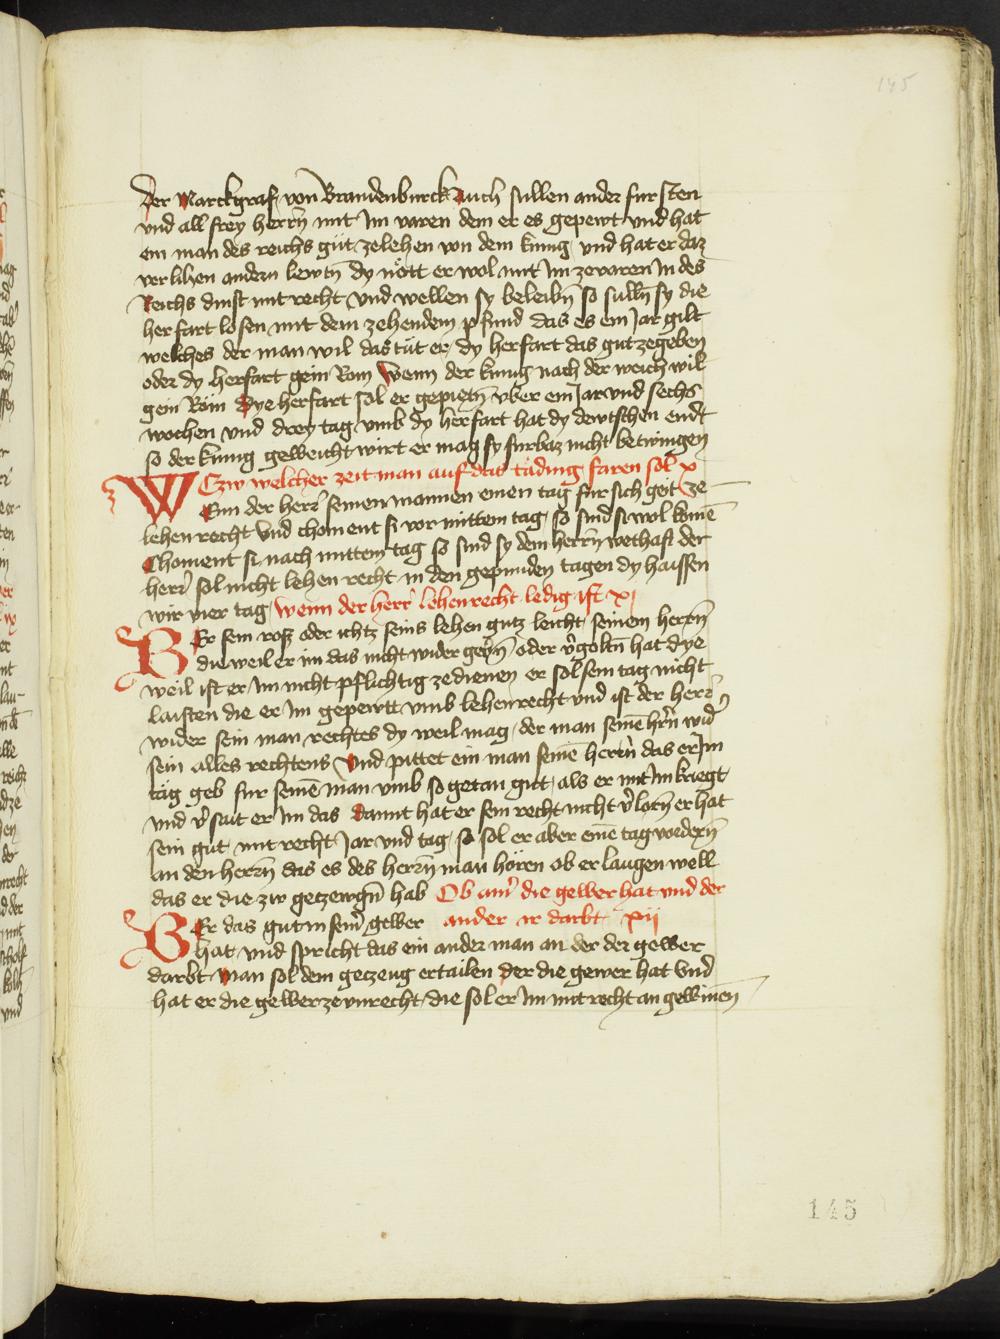 145
der Marckgraf von Brandenburck Auch sullen ander fursten
vnd all frey herrn mit Im varen dem er es gepewt vnd hat
ein man des reichs gut zelehen von dem kunig vnd hat er daz
verlihen andern lewtn dy nott er wol mit Im zevaren In des
Reichs dinst mit recht vnd wellen sy beleibn so sulln sy die
herfart losen mit dem zehendem pfund das es ein Jar gilt
welches der man wil das tut er dy herfart das gut zegeben
oder dy herfart gein Rom Wenn der kunig nach der weich wil
gein Rom Dye herfart sol er gepietn vber ein Jar vnd sechs
wochen vnd drey tag vmb dy herfart hat dy dewtschen endt
so der kunig geweicht wirt er mag sy furbaz nicht betwingen
Czw welcher zeit man auf das tading faren sol x
Wenn der herr seinen mannen einen tag fur sich geit ze
lehenrecht vnd choment si vor mittem tag so sind si wol kome
Choment si nach mittem tag so sind sy dem herrn wethaft der
herr sol nicht lehenrecht in den gepunden tagen dy haissen
wir vier tag Wenn der herr lehenrecht ledig ist xi
Ber sein rosz oder ichtz seins lehen gutz leicht seinem herrn
die weil er im das nicht wider gebn oder vgoltn hat dye
weil ist er Im nicht pflichtig zedienen er sol sein tag nicht
laisten die er Im gepewtt vmb lehenrecht vnd ist der herr
wider sein man rechtes dy weil mag der man seine hrn wid
sein alles rechtens Vnd pittet ein man seine herrn das er Im
tag geb fur seine man vmb so getan gut als er mit Im kriegt
vnd vsait er Im das Damit hat er sein recht nicht vlorn er hat
sein gut mit recht Jar vnd tag so sol er aber eine tag vodern
an den herrn das es des herrn man horen ob er laugen well
das er die zw getzewgn hab Ob ainr die gewer hat vnd der
Ber das gut in seinr gewer ander ir darbt xii
hat vnd spricht das ein ander man an der der gewer
darbt Man sol dem getzeug ertailen Der die gewer hat Vnd
hat er die gewer ze vnrecht die sol er Im mit recht an gewinen
145